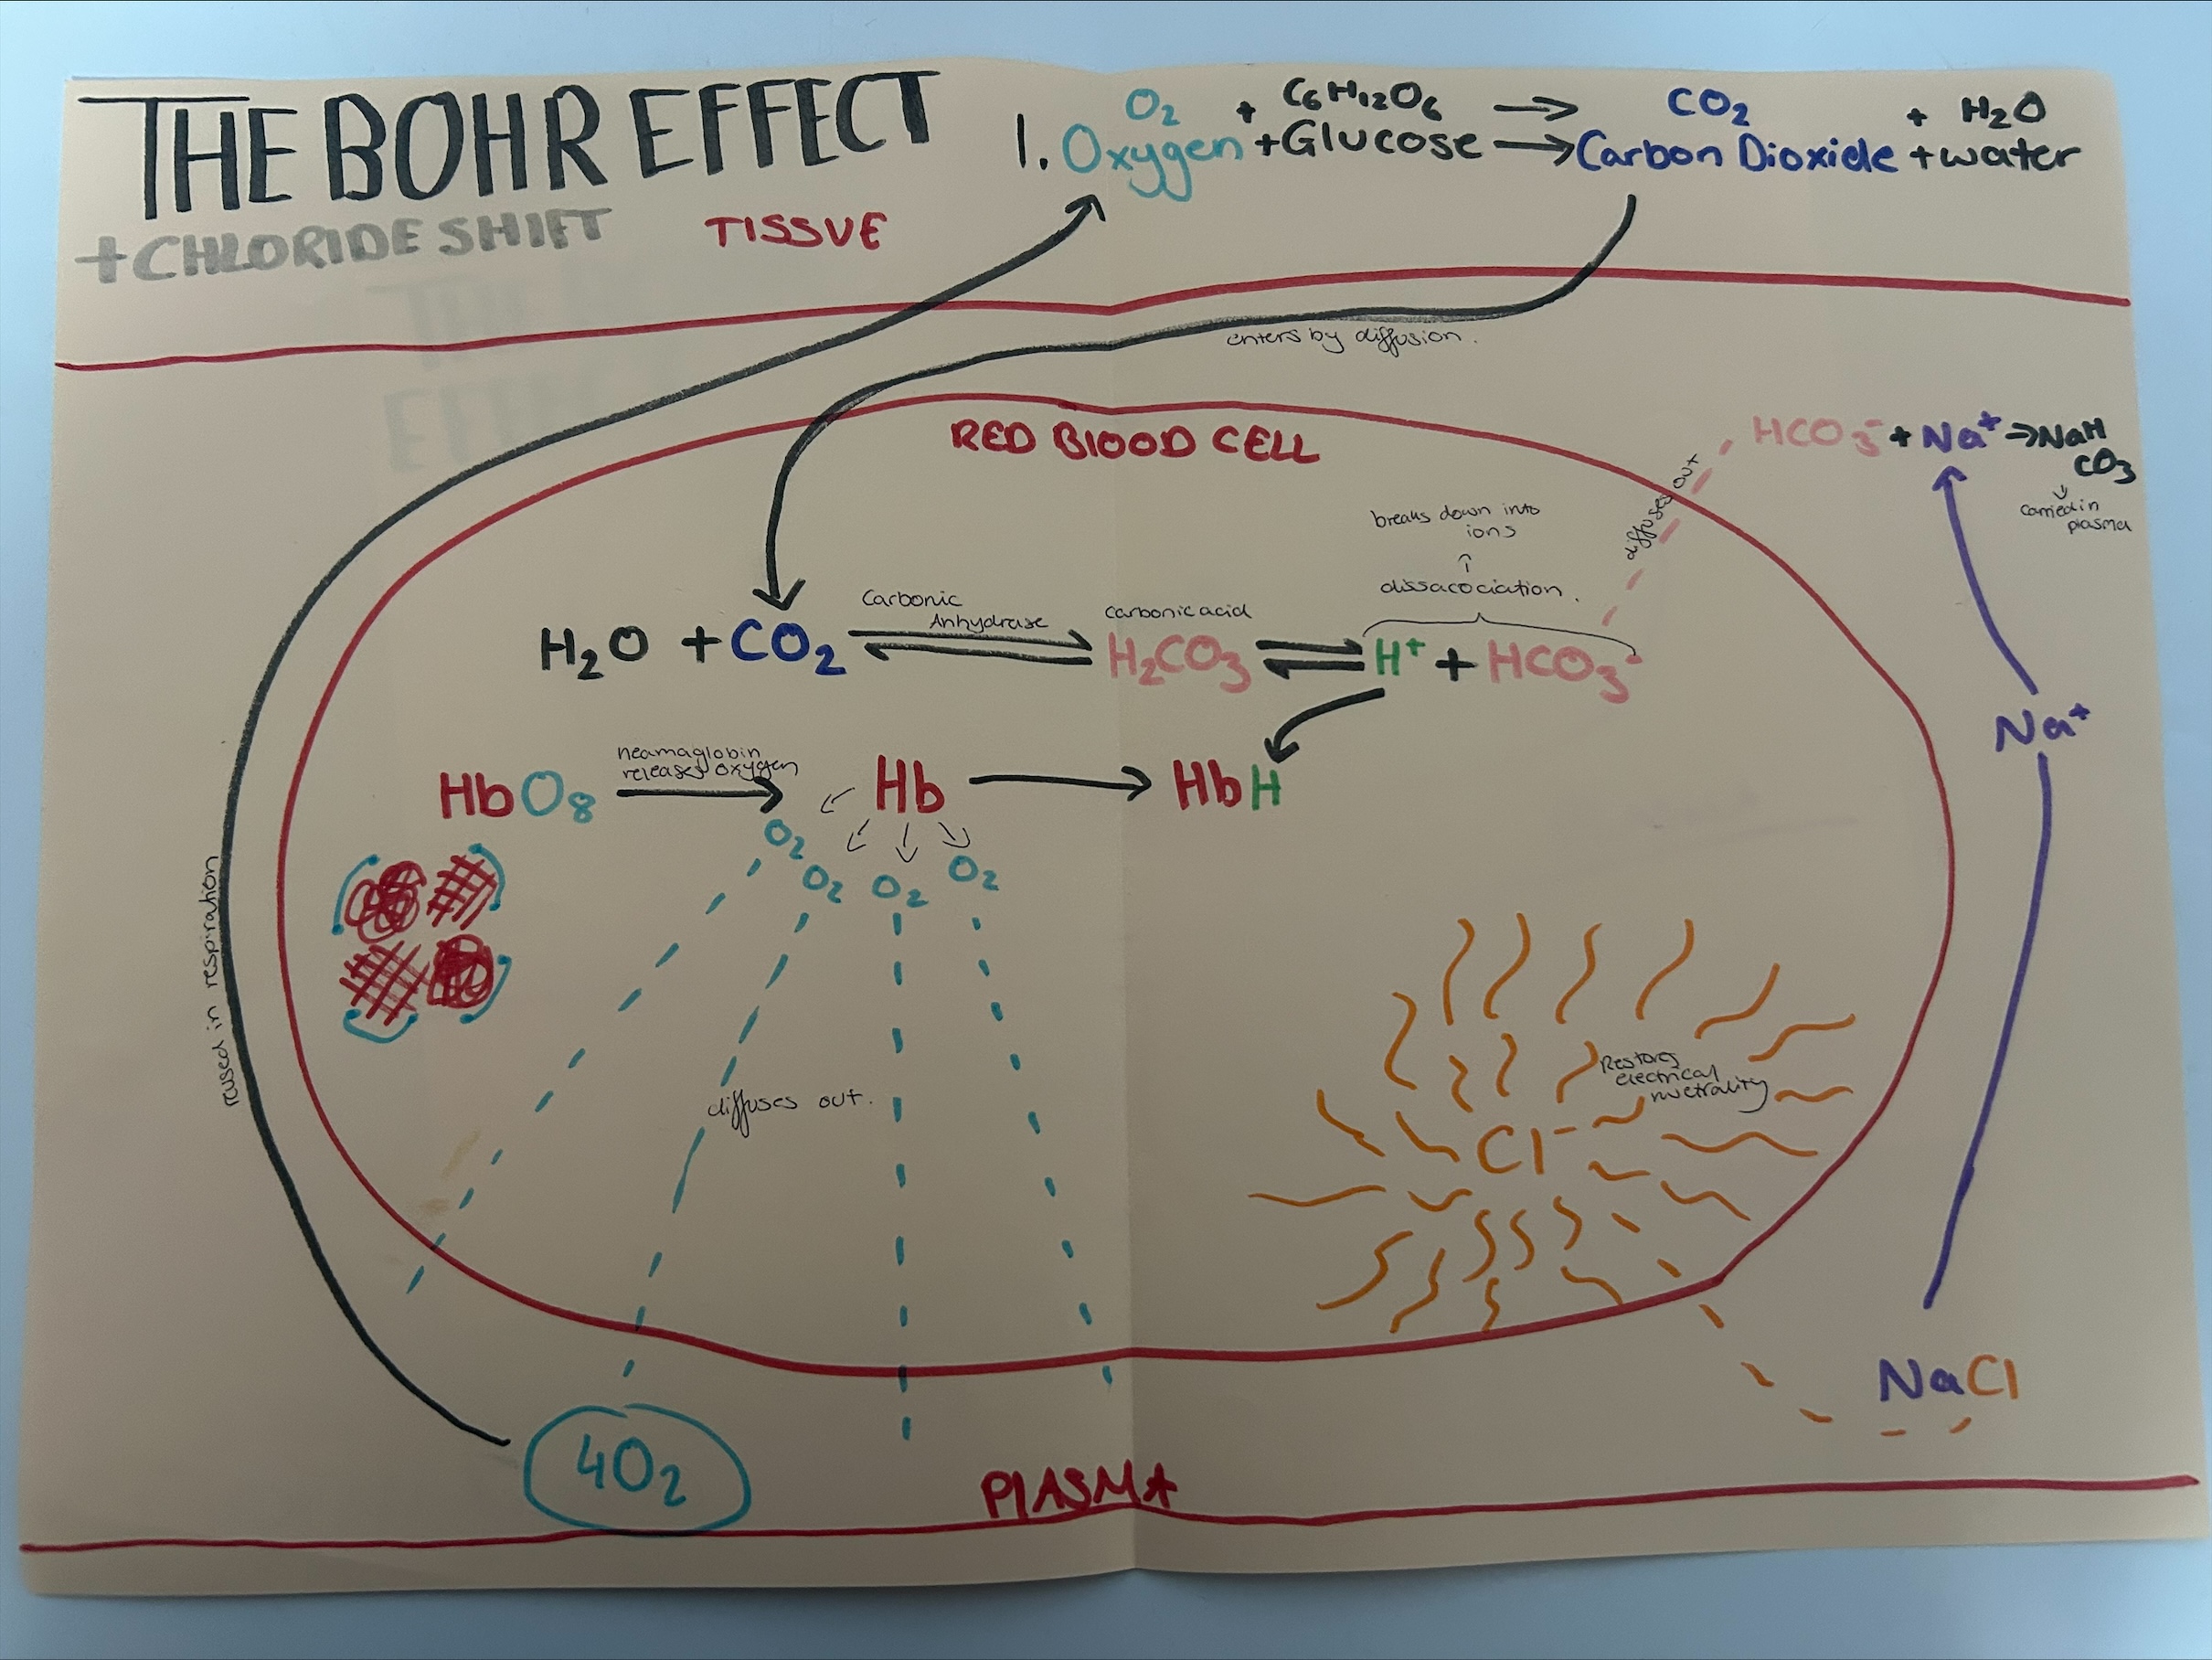 THE BOHR EFFECT
+CHLORIDE SHIFT
TISSUE
O₂ + C₆H₁₂O₆ → CO₂ + H₂O
1. Oxygen + Glucose → Carbon Dioxide + water
enters by diffusion.
RED BLOOD CELL
HCO₃⁻ + Na⁺ → NaH
CO₃
carried in
plasma
diffuses out
breaks down into
ions
↑
dissacociation.
Carbonic
Anhydrase
carbonic acid
H₂O + CO₂ ⇌ H₂CO₃ ⇌ H⁺ + HCO₃⁻
Na⁺
neamaglobin
releases oxygen
HbO₈ → Hb → HbH
O₂ O₂ O₂ O₂
reused in respiration
diffuses out.
Restores
electrical
nuetrality
Cl⁻
NaCl
4O₂
PLASMA